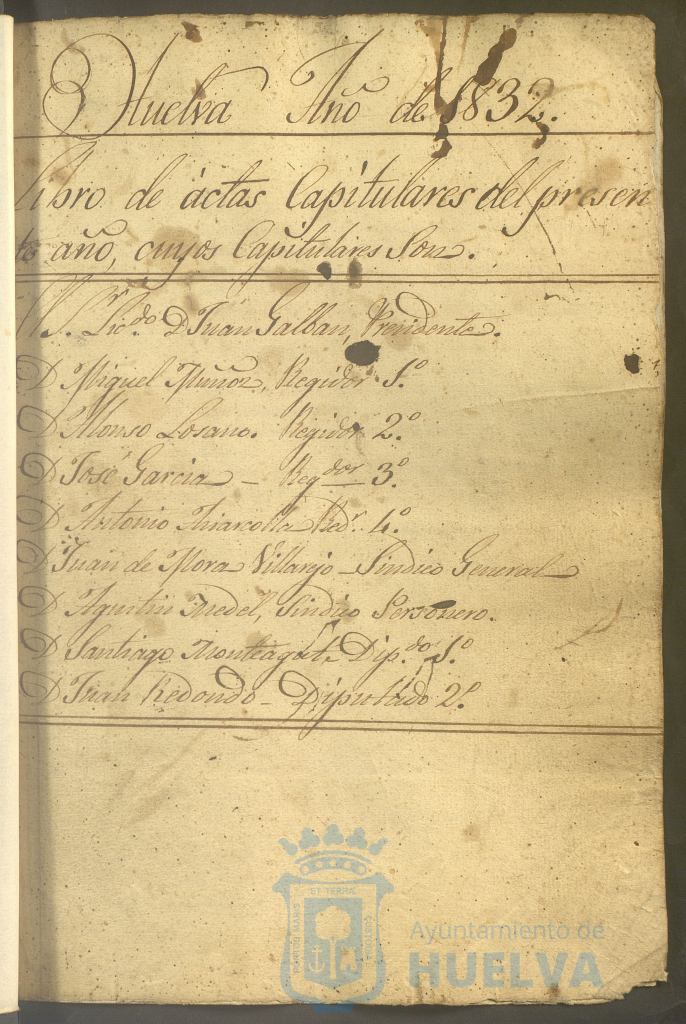 Huelva Año de 1832.
Libro de áctas Capitulares del presen
te año, cuyos Capitulares Son.
S.r Lic.do D Juan Galban, Presidente.
D Miguel Muñoz, Regidor 1.º
D Alonso Losano. Regidor 2.º
D José Garcia - Reg.dor 3.º
D Antonio Red.r 4.º
D Juan de Mora Villarejo - Sindico General
D Agustin Medel, Sindico Personero.
D Santiago Monteagut, Dip.do 1.º
D Juan Redondo - Diputado 2.º
PORTUS MARIS ET TERRAE CUSTODIA
Ayuntamiento de
HUELVA